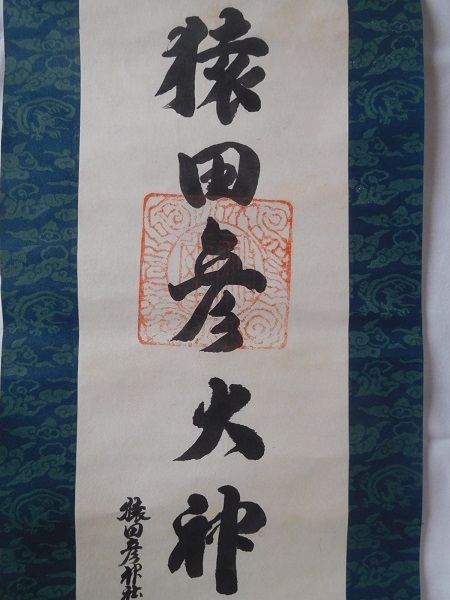 猿田彦大神
猿田彦神社